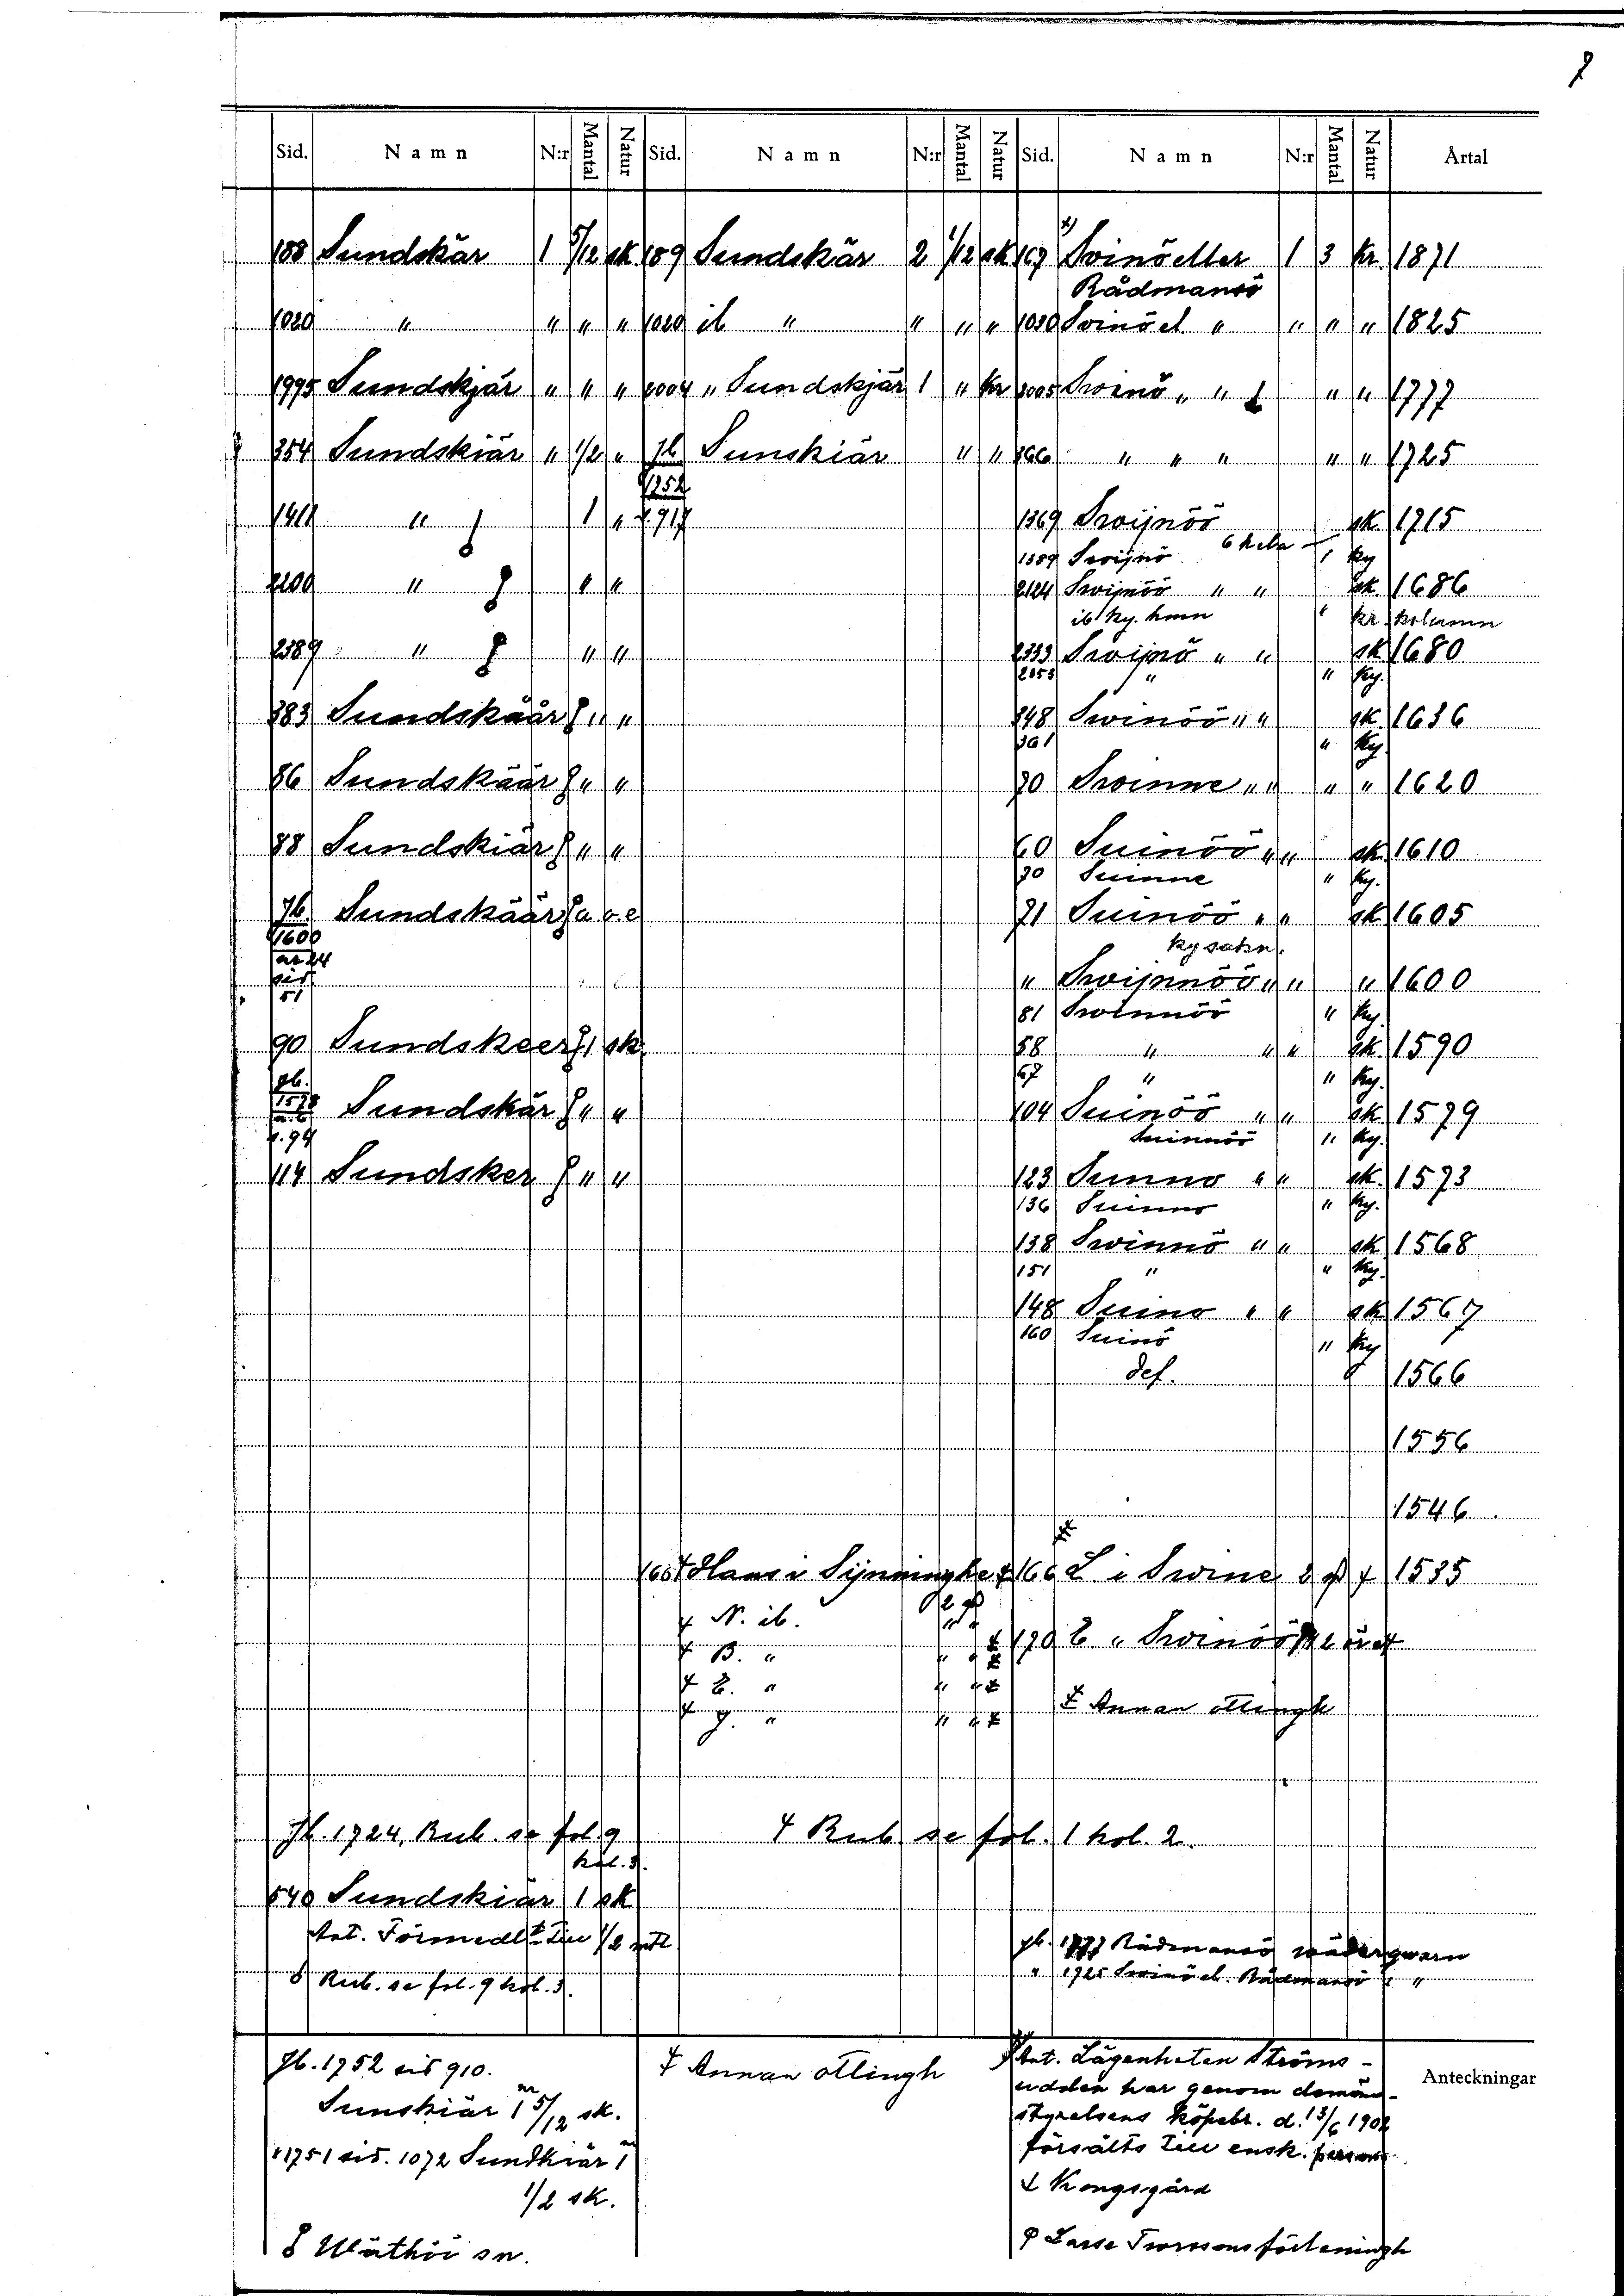 Sid. Namn N:r Mantal Natur Sid. Namn N:r Mantal Natur Sid. Namn N:r Mantal Natur Årtal
188 Sundskär 1 5/12 sk 189 Sundskär 2 1/12 sk 167 x) Svinö eller 1 3 kr. 1871
Rådmansö
1020 " " " " 1020 ib " " " " 1030 Svinö el " " " " 1825
1995 Sundskjär " " " 2004 " Sundskjär 1 " kr 2005 Swinö " " " " 1777
354 Sundskiär " 1/2 " Jb Sunskiär " " 366 " " " " " 1725
1752
1411 " 1 " s. 917 1369 Swijnöö sk. 1715
1389 Swijnö 1 ky
2100 " " " 2124 Swijnöö " " sk. 1686
ib ky. hmn " kr. kolumn
2389 " " " 2333 Swijnö " " sk 1680
2353 " " ky.
383 Sundskäär " " 348 Swinöö " " sk. 1636
361 " ky.
86 Sundskäär " " 70 Swinne " " " " 1620
88 Sundskiär " " 60 Suinöö " " sk. 1610
70 Suinne " ky.
Jb. Sundskäär 71 Suinöö " " sk 1605
1600
nr 24
sid
51
ky sakn.
" Swijnnöö " " " 1600
81 Swinnöö " ky.
90 Sundskeer 1 sk. 58 " " " sk. 1590
67 " " ky.
Jb.
1578 Sundskär " " 104 Suinöö " " sk 1579
s. 94 Suinnöö " ky.
114 Sundsker " " 123 Sunno " " sk. 1573
136 Suinno " ky.
138 Swinnö " " sk. 1568
151 " " ky.
148 Suino " " sk 1567
160 Suinö " ky
def. 1566
1556
1546
166 Hans i Sijnninghe 166 L i Swine 1535
N. ib.
B. " 170 E " Swinöö
E. "
J. " Annan ottingh
Jb. 1724, Rub. se fol. 9
kol. 3.
Rub se fol. 1 kol. 2.
540 Sundskiär 1 sk
Ant. Förmedlt till 1/2 mtl
Rub. se fol. 9 kol. 3.
Jb. 1777 Rådmansö wäderqwarn
" 1725 Swinö el. Rådmansö "
Jb. 1752 sid 910.
Sunskiär 1 5/12 sk.
" 1751 sid. 1072 Sundkiär 1
1/2 sk.
Wäthöö sn.
Annan ottingh
x) Ant. Lägenheten Ströms-
udden har genom domän-
styrelsens köpebr. d. 13/6 1902
försålts till ensk. person.
Kongsgård
Lasse Tworssons förläningh
Anteckningar